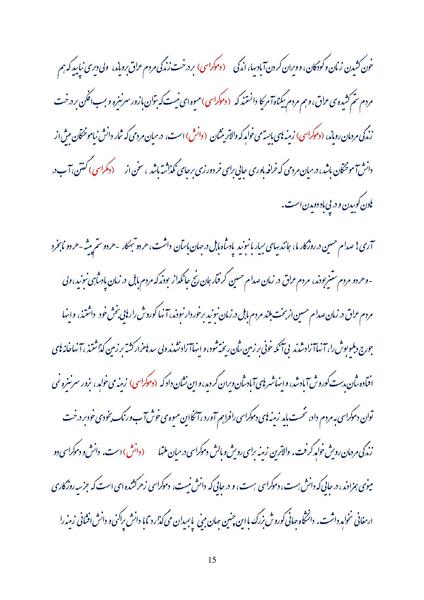 خون کشیدن زنان و کودکان، و ویران کردن آبادیها، اندکی (دموکراسی) بر درخت زندگی مردم عراق برویاند، ولی دیری نپایید که هم
مردم ستم کشیده ی عراق، و هم مردم بیگناه آمریکا دانستند که (دموکراسی) میوه ای نیست که بتوان با زور سرنیزه و بمب افکن بر درخت
زندگی مردمان رویاند، (دموکراسی) زمینه های بایسته می خواهد که والاترینشان (دانش) است، در میان مردمی که شمار دانش نیاموختگان بیش از
دانش آموختگان باشد، در میان مردمی که خرافه باوری جایی برای خردورزی بر جای نگذاشته باشد، سخن از (دمکراسی) گفتن، آب در
هاون کوبیدن و در پی باد دویدن است.
آری! صدام حسین در روزگار ما، همانندیهای بسیار با نبونید پادشاه بابل در جهان باستان داشت، هر دو تبهکار - هر دو ستم پیشه - هر دو نابخرد
- و هر دو مردم ستیز بودند، مردم عراق در زمان صدام حسین گرفتار همان رنج جانگداز بودند که مردم بابل در زمان پادشاهی نبونید، ولی
مردم عراق در زمان صدام حسین از بخت بلند مردم بابل در زمان نبونید برخوردار نبودند، آنها کوروش را رهایی بخش خود داشتند، و اینها
جورج دبلیو بوش را، آنها آزاد شدند بی آنکه خونی بر زمین شان ریخته شود، و اینها آزاد نشدند ولی سدها هزار کشته بر زمین گذاشتند، آنها خانه های
افتاده شان بدست کوروش آباد شد، و اینها شهرهای آبادشان ویران گردید، و این نشان داد که (دموکراسی) زمینه می خواهد، بزور سرنیزه نمی
توان دموکراسی به مردم داد، نخست باید زمینه های دموکراسی را فراهم آورد، آنگاه این میوه ی خوش آب و رنگ بخودی خود بر درخت
زندگی مردمان رویش خواهد گرفت. والاترین زمینه برای رویش و بالش دموکراسی در میان ملتها (دانش) است. دانش و دموکراسی دو
مینوی همزادند، در جایی که دانش هست، دموکراسی هست، و در جایی که دانش نیست، دموکراسی زهر کشنده ای است که جز سیه روزگاری
ارمغانی نخواهد داشت. دانشگاه جهانی کوروش بزرگ با این چنین جهان بینی پا بمیدان می گذارد تا با دانش پراکنی و دانش افشانی زمینه را
15